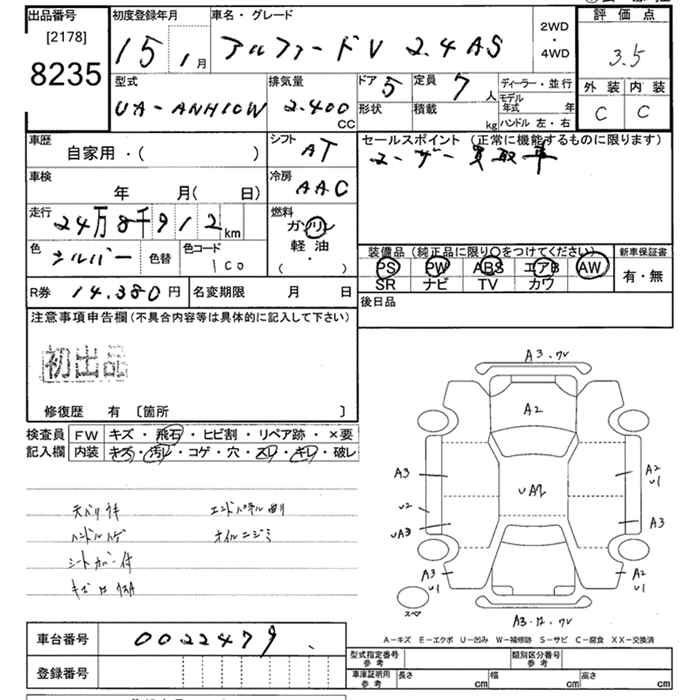 出品番号
[2178]
8235
初度登録年月
15 1月
車名・グレード
アルファードV 2.4AS
2WD
・
4WD
評価点
3.5
外装 内装
C C
型式
UA-ANH10W
排気量
2.400
CC
ドア 5
形状
定員 7人
積載 kg
ディーラー・並行
モデル年式 年
ハンドル 左・右
車歴
自家用・( )
シフト
AT
セールスポイント (正常に機能するものに限ります)
ユーザー買取車
車検
年 月( 日)
冷房
AAC
走行
24万8千912km
燃料
ガソリン
軽油
( ・ )
色
シルバー
色替
色コード
1C0
装備品 (純正品に限り○をつけてください)
PS PW ABS エアB AW
SR ナビ TV カワ
新車保証書
有・無
R券 14.380円
名変期限 月 日
後日品
注意事項申告欄(不具合内容等は具体的に記入して下さい)
初出品
修復歴 有 〔箇所 〕
検査員
記入欄
FW キズ・飛石・ヒビ割・リペア跡・×要
内装 キズ・汚レ・コゲ・穴・スレ・キレ・破レ
天バリウキ エンドパネル曲リ
ハンドルハゲ オイルニジミ
シートカバー付
A3.
A2
UA2
A3
A2
U1
U2
UA3
A3
A3
U1
A2
U1
スペア
A3.
A－キズ E－エクボ U－凹み W－補修跡 S－サビ C－腐食 XX－交換済
車台番号
0022479
登録番号
型式指定番号
参考
類別区分番号
参考
車庫証明用
参考
長さ cm
幅 cm
高さ cm